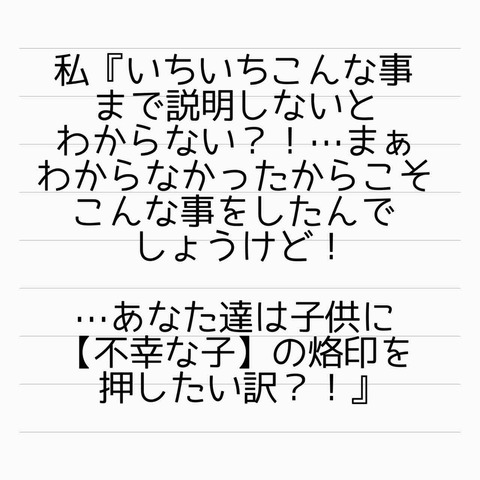 私『いちいちこんな事
まで説明しないと
わからない？！…まぁ
わからなかったからこそ
こんな事をしたんで
しょうけど！
…あなた達は子供に
【不幸な子】の烙印を
押したい訳？！』